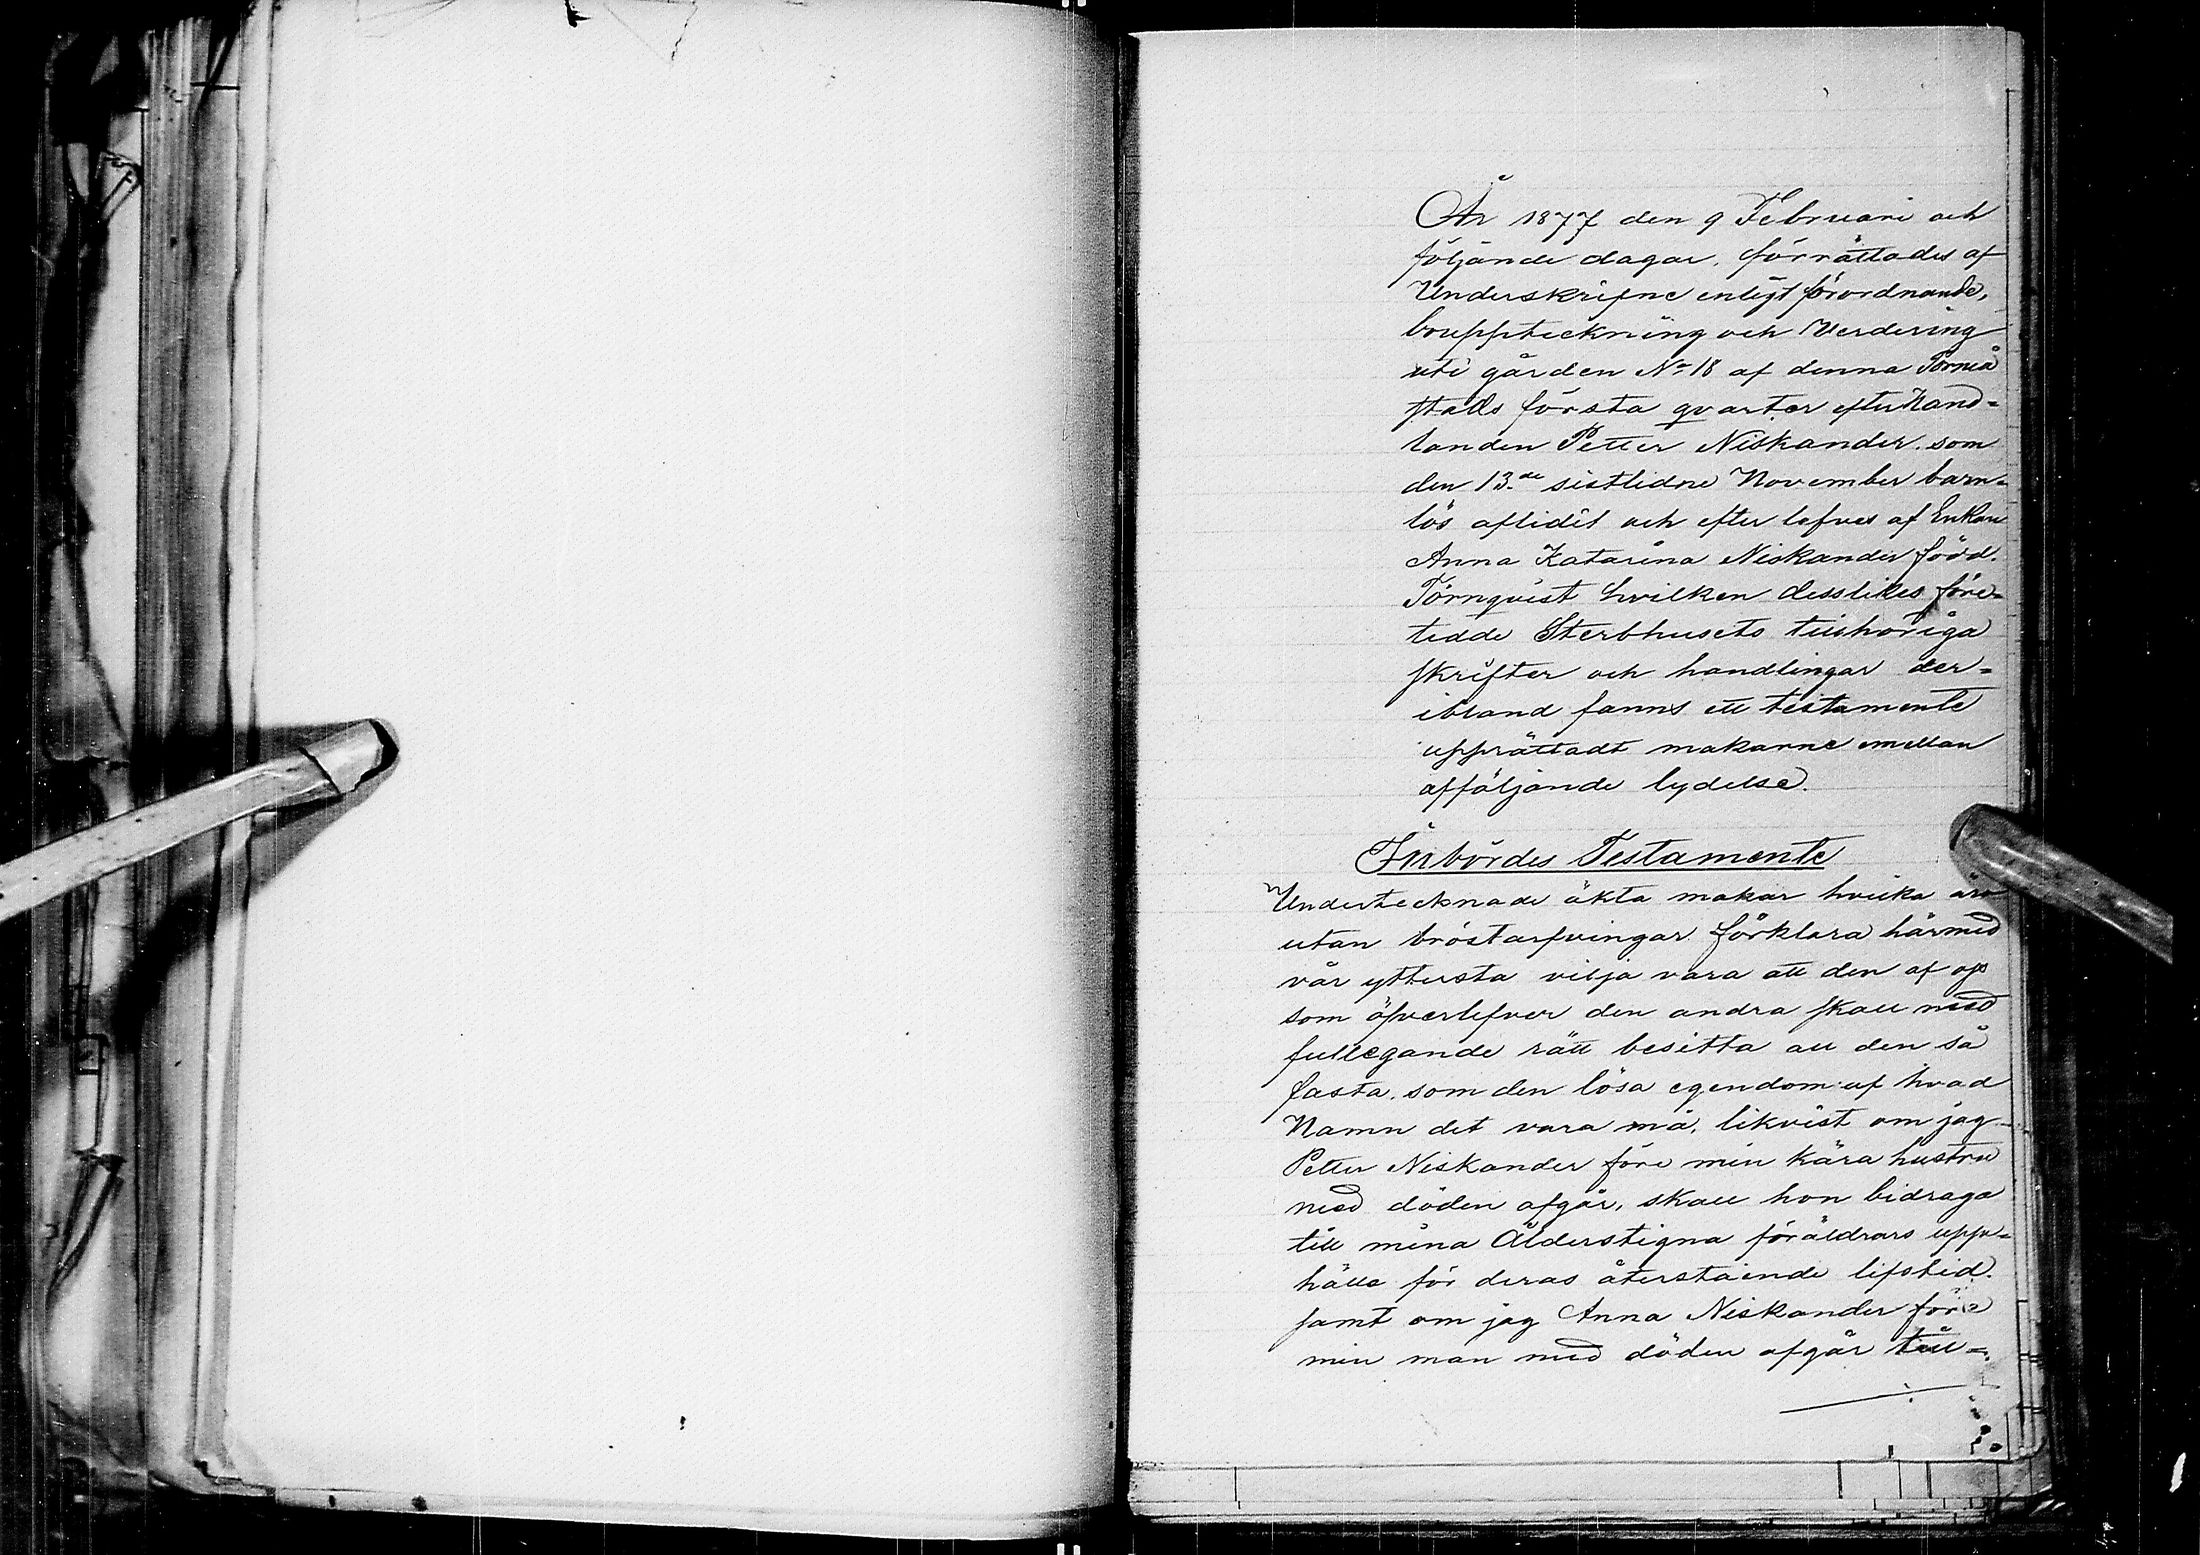 År 1877 den 9 Februari och
följande dagar, förrättades af
Underskrifne enligt förordnande,
bouppteckning och Verdering
uti gården No 18 af denna Torneå
stads första qvarter efter Hand-
landen Petter Niskander som
den 13.de sistlidne November barn-
lös aflidit och efter lefves af Enkan
Anna Katarina Niskander född.
Törnqvist hvilken desslikes före-
tedde Sterbhusets tillhöriga
skrifter och handlingar der-
ibland fanns ett testamente
upprättadt makarne emellan
afföljande lydelse.
Inbördes Testamente
Undertecknade äkta makar hvilka äro
utan bröstarfvingar förklara härmed
vår yttersta vilja vara att den af oss
som öfverlefver den andra skall med
full egande rätt besitta all den så
fasta som den lösa egendom af hvad
Namn det vara må, likvist om jag
Petter Niskander före min kära hustru
med döden afgår, skall hon bidraga
till mina Ålderstigna föräldrars uppe-
hälle för deras återstående lifstid.
samt om jag Anna Niskander före
min man med döden afgår till-